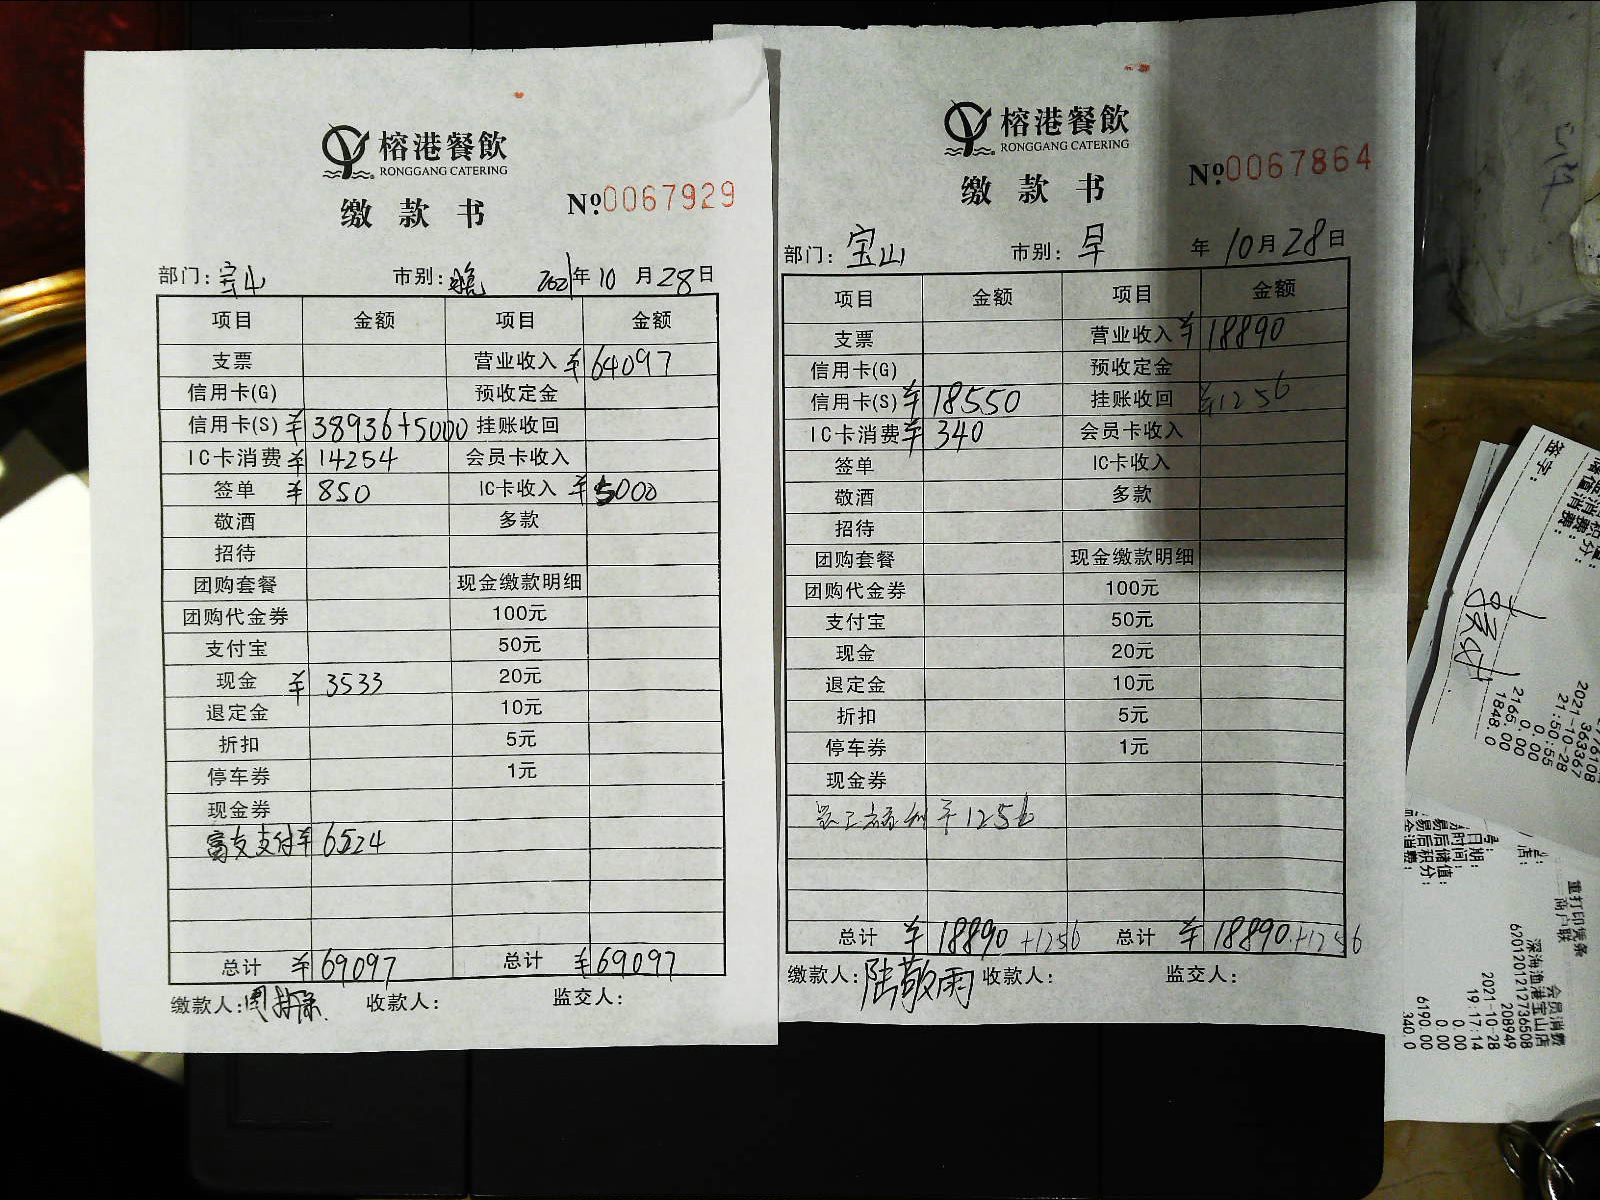 榕港餐飲
RONGGANG CATERING
缴款书 №0067929
部门：宝山 市别：晚 2021年10月28日
项目 金额 项目 金额
支票 营业收入 ¥64097
信用卡(G) 预收定金
信用卡(S) ¥38936+5000 挂账收回
IC卡消费 ¥14254 会员卡收入
签单 ¥850 IC卡收入 ¥5000
敬酒 多款
招待
团购套餐 现金缴款明细
团购代金券 100元
支付宝 50元
现金 ¥3533 20元
退定金 10元
折扣 5元
停车券 1元
现金券
富友支付 ¥6524
总计 ¥69097 总计 ¥69097
缴款人： 收款人： 监交人：
榕港餐飲
RONGGANG CATERING
缴款书 №0067864
部门：宝山 市别：早 年10月28日
项目 金额 项目 金额
支票 营业收入 ¥18890
信用卡(G) 预收定金
信用卡(S) ¥18550 挂账收回 ¥1256
IC卡消费 ¥340 会员卡收入
签单 IC卡收入
敬酒 多款
招待
团购套餐 现金缴款明细
团购代金券 100元
支付宝 50元
现金 20元
退定金 10元
折扣 5元
停车券 1元
现金券
员工福利 ¥1256
总计 ¥18890+1256 总计 ¥18890+1256
缴款人：陆敬雨 收款人： 监交人：
签字：
363367
2021-10-28
21:50:55
0.00
0.00
2165.00
1848.0
重打印凭条
商户联
会员消费
深海渔港宝山店
6201201212736508
208949
2021-10-28
19:17:14
0.00
0.00
6190.00
340.0